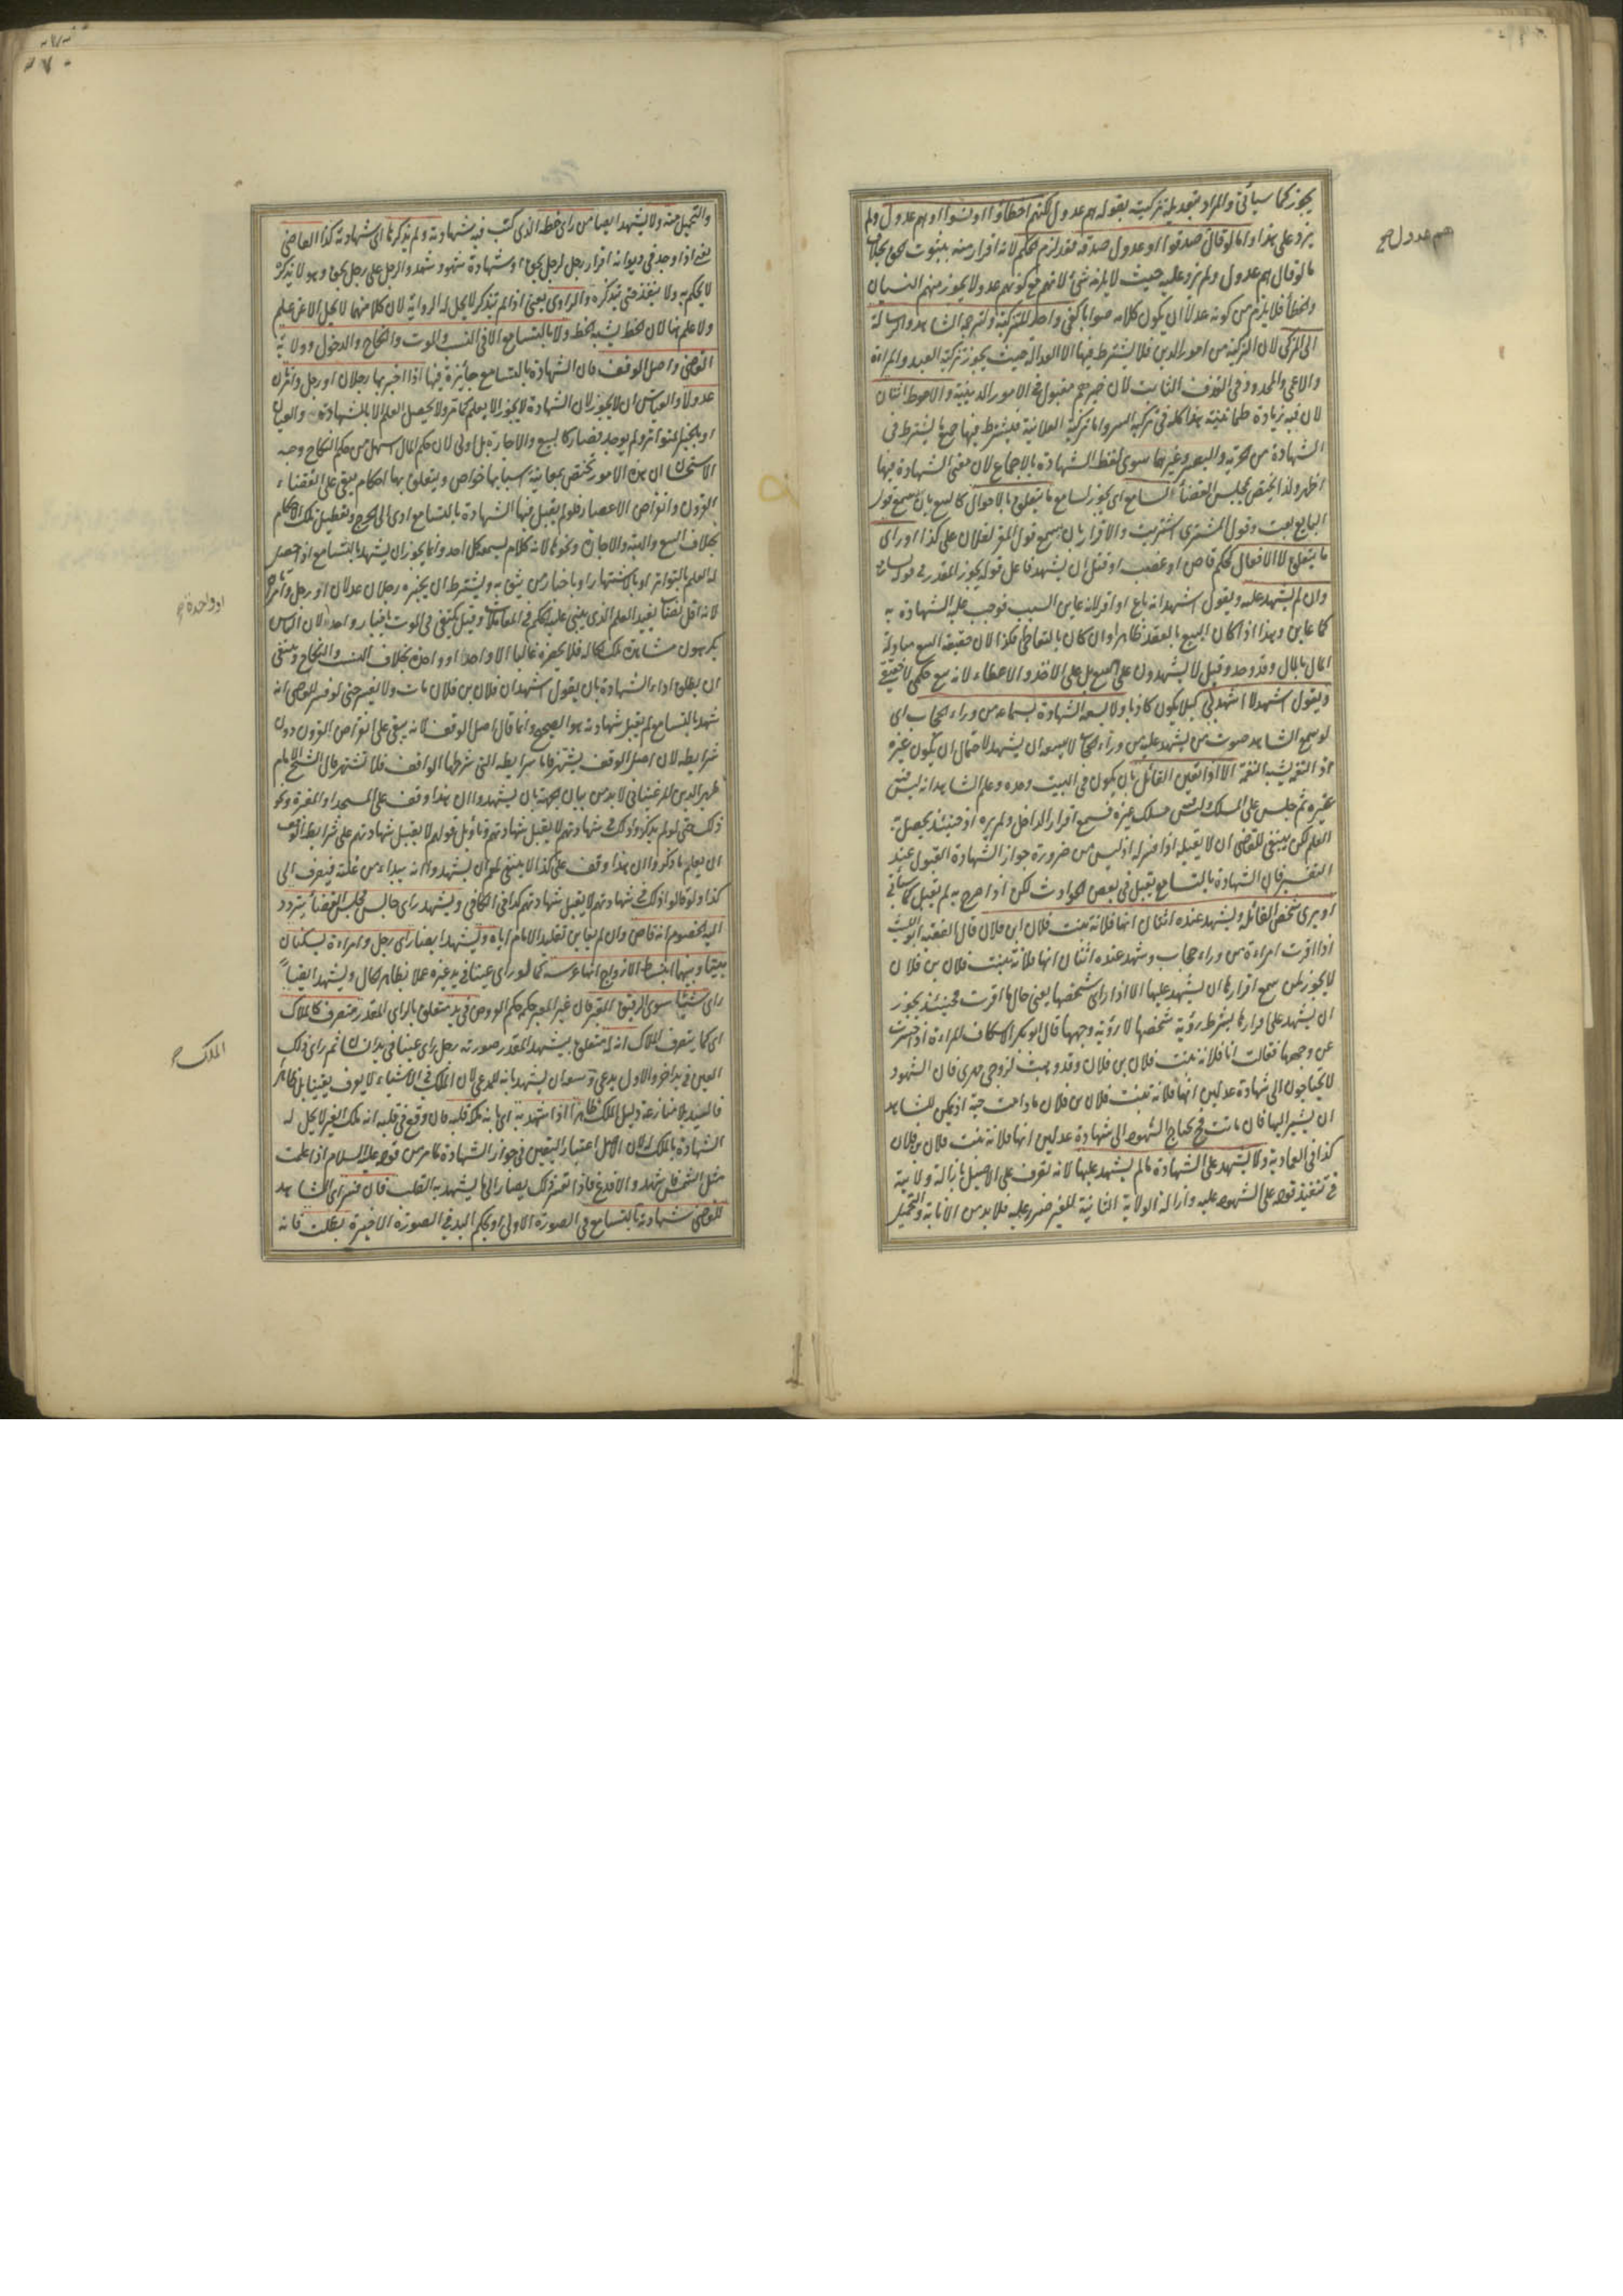 يجوز كما سيأتي والمراد بتعديله تزكيته بقوله هم عدول لكنهم اخطأوا او نسوا او هم عدول ولم
يزد على هذا واما لو قال صدقوا او عدول صدقة فقد لزم الحكم لانه اقرار منه بثبوت الحق بخلاف
ما لو قال هم عدول ولم يزد عليه حيث لا يلزمه شئ لانهم مع كونهم عدولا يجوز منهم النسيان
والخطأ فلا يلزم من كونه عدلا ان يكون كلامه صوابا كفى واحد للتزكية وترجمة الشاهد والرسالة
الى المزكي لان التزكية من امور الدين فلا يشترط فيها الا العدالة حيث يجوز تزكية العبد والمرأة
والاعمى والمحدود في القذف التائب لان خبرهم مقبول في الامور الدينية والاحوط اثنان
لان فيه زيادة طمانينة هذا كله في تزكية السر واما تزكية العلانية فيشترط فيها جميع ما يشترط في
الشهادة من الحرية والبصر وغيرهما سوى لفظ الشهادة بالاجماع لان معنى الشهادة فيها
اظهر ولذا يختص بمجلس القضاء السامع اي يجوز لسامع ما يتعلق بالاقوال كالبيع بان سمع قول
البايع بعت وقول المشتري اشتريت والاقرار بان سمع قول المقر لفلان على كذا او راى
ما يتعلق بالافعال كحكم قاض او غصب او قتل ان يشهد فاعل قوله يجوز المقدر في قوله لسامع
وان لم يشهد عليه ويقول اشهد انه باع او اقر لانه عاين السبب فوجب عليه الشهادة به
كما عاين وهذا اذا كان البيع بالعقد ظاهر وان كان بالتعاطي فكذا لان حقيقة البيع مبادلة
المال بالمال وقد وجد وقيل لا يشهدون على البيع بل على الاخذ والاعطاء لانه بيع حكمي لا حقيقي
ويقول اشهد لا اشهدني كيلا يكون كاذبا ولا يسعه الشهادة بسماعه من وراء الحجاب اي
لو سمع الشاهد صوت من يشهد عليه من وراء الحجاب لا يسعه ان يشهد لاحتمال ان يكون غيره
اذ النغمة يشبه النغمة الا اذا تعين القائل بان يكون في البيت وحده وعلم الشاهد انه ليس فيه
غيره ثم جلس على المسلك وليس مسلك غيره فسمع اقرار الداخل ولم يره اذ حينئذ يحصل به
العلم لكن ينبغي للقاضي ان لا يقبله اذا فسر له اذ ليس من ضرورة جواز الشهادة القبول عند
التفسير فان الشهادة بالتسامع يقبل في بعض الحوادث لكن اذا صرح به لم يقبل كما سيأتي
او يرى شخص القائل ويشهد عنده اثنان انها فلانة بنت فلان ابن فلان قال الفقيه ابو الليث
اذا اقرت امرأة من وراء حجاب وشهد عنده اثنان انها فلانة بنت فلان بن فلان
لا يجوز لمن سمع اقرارها ان يشهد عليها الا اذا راى شخصها يعني حال ما اقرت فحينئذ يجوز
ان يشهد على اقرارها بشرط رؤية شخصها لا رؤية وجهها قال ابو بكر الاسكاف المرأة اذا حسرت
عن وجهها فقالت انا فلانة بنت فلان بن فلان وقد وهبت لزوجي مهري فان الشهود
لا يحتاجون الى شهادة عدلين انها فلانة بنت فلان بن فلان ما دامت حية اذ يمكن للشاهد
ان يشير اليها فان ماتت فح يحتاج الشهود الى شهادة عدلين انها فلانة بنت فلان بن فلان
كذا في العمادية ولا يشهد على الشهادة ما لم يشهد عليها لانه تصرف على الاصيل بازالة ولايته
في تنفيذ قوله على المشهود عليه وازالة الولاية الثانية للغير ضرر عليه فلا بد من الانابة والتحميل
هم عدول صح
والتحميل منه ولا يشهد ايضا من راى خطه الذي كتب فيه شهادته ولم يتذكرها اي شهادته كذا القاضي
يعني اذا وجد في ديوانه اقرار رجل لرجل بحق او شهادة شهود شهدوا لرجل على رجل بحق وهو لا يتذكره
لا يحكم به ولا ينفذ حتى يتذكره والراوي يعني اذا لم يتذكر لا يحل له الرواية لان كلا منهما لا يحل الا عن علم
ولا علم هنا لان الخط يشبه الخط ولا بالتسامع الا في النسب والموت والنكاح والدخول وولاية
القاضي واصل الوقف فان الشهادة بالتسامع جائزة فيها اذا اخبر بها رجلان او رجل وامرأتان
عدول والقياس ان لا يجوز لان الشهادة لا يجوز الا بعلم كما مر ولا يحصل العلم الا بالمشاهدة والعيان
او بالخبر المتواتر ولم يوجد فصار كالبيع والاجارة بل اولى لان حكم المال اسهل من حكم النكاح وجه
الاستحسان ان هذه الامور تختص بمعاينة اسبابها خواص ويتعلق بها احكام يبقى على انقضاء
القرون وانقراض الاعصار فلو لم يقبل فيها الشهادة بالتسامع ادى الى الحرج وتعطيل تلك الاحكام
بخلاف البيع والهبة والاجارة ونحوها لانه كلام يسمعه كل احد وانما يجوز ان يشهد بالتسامع اذا حصل
له العلم بالتواتر او بالاشتهار او باخبار من يثق به ويشترط ان يخبره رجلان عدلان او رجل وامرأتان
لانه اقل نصاب يفيد العلم الذي يبنى عليه الحكم في المعاملات وقيل يكتفى في الموت باخبار واحد لان الناس
يكرهون مشاهدة تلك الحالة فلا يحضره غالبا الا واحد او واحدة بخلاف النسب والنكاح وينبغي
ان يطلق اداء الشهادة بان يقول اشهد ان فلان بن فلان مات ولا يفسر حتى لو فسر للقاضي انه
شهد بالتسامع لم يقبل شهادته هو الصحيح وانما قال اصل الوقف لانه يبقى على انقراض القرون دون
شرايطه لان اصل الوقف يشتهر فاما شرايطه التي شرطها الواقف فلا تشتهر قال الشيخ الامام
ظهير الدين المرغيناني لا بد من بيان الجهة بان يشهدوا ان هذا وقف على المسجد او المقبرة ونحو
ذلك حتى لو لم يذكروا ذلك في شهادتهم لا يقبل شهادتهم وتاويل قولهم لا يقبل شهادتهم على شرايط الوقف
ان بعد ما ذكروا ان هذا وقف على كذا لا ينبغي لهم ان يشهدوا انه يبداء من غلته فيصرف الى
كذا ولو قالوا ذلك في شهادتهم لا يقبل شهادتهم كذا في الكافي ويشهد راى جالس مجلس القضاء يتردد
اليه الخصوم انه قاض وان لم يعاين تقليد الامام اياه ويشهد ايضا راى رجل وامرأة يسكنان
بيتا وبينهما انبساط الازواج انها عرسه كما لو راى عينا في يد غيره عملا بظاهر الحال ويشهد ايضا
راى شئ سوى الرقيق المعبر فان غير المعبر حكمه حكم العروض في يد متعلق بالراي المقدر متصرف كالملاك
اي كما يتصرف الملاك انه له متعلق بيشهد المقدر صورته رجل راى عينا في يد انسان ثم راى ذلك
العين في يد اخر والاول يدعيه وسعه ان يشهد بانه للمدعي لان الملك في الاشياء لا يعرف يقينا بل ظاهرا
فاليد بلا منازعة دليل الملك ظاهرا اذا شهد به اي بانه ملكه قلبه فان وقع في قلبه انه ملك الغير لا يحل له
الشهادة بالملك له لان الاصل اعتبار اليقين في جواز الشهادة لما مر من قوله عليه السلام اذا علمت
مثل الشمس فاشهد والا فدع فاذا تعذر ذلك يصار الى ما يشهد به القلب فان فسر اي الشاهد
للقاضي شهادته بالتسامع في الصورة الاولى او بحكم اليد في الصورة الاخيرة بطلت فانه
او واحدة صح
الملك صح